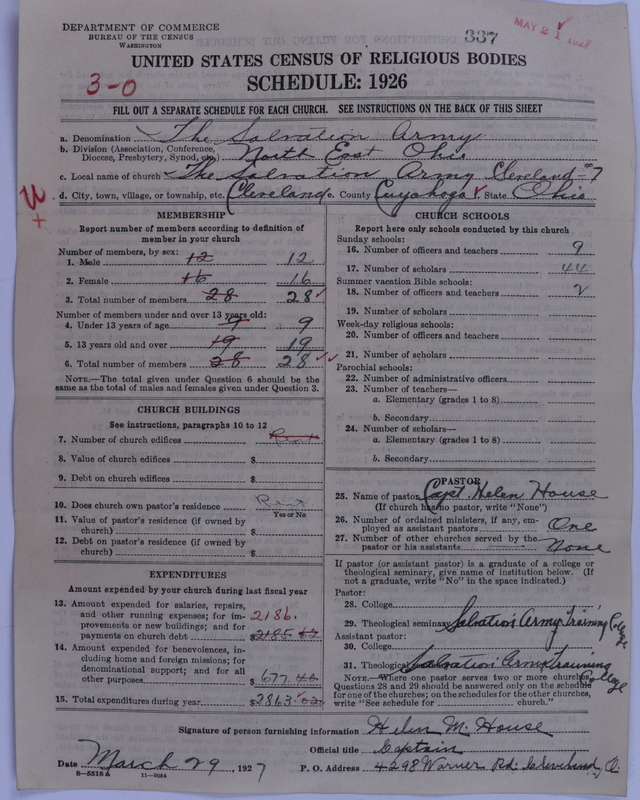 337
MAY 21 1927
DEPARTMENT OF COMMERCE
BUREAU OF THE CENSUS
WASHINGTON
UNITED STATES CENSUS OF RELIGIOUS BODIES
3-0
SCHEDULE: 1926
FILL OUT A SEPARATE SCHEDULE FOR EACH CHURCH. SEE INSTRUCTIONS ON THE BACK OF THIS SHEET
a. Denomination The Salvation Army
b. Division (Association, Conference, Diocese, Presbytery, Synod, etc.) North East Ohio
c. Local name of church The Salvation Army Cleveland #7
d. City, town, village, or township, etc. Cleveland e. County Cuyahoga f. State Ohio
MEMBERSHIP
Report number of members according to definition of member in your church
Number of members, by sex:
1. Male 12 12
2. Female 16 16
3. Total number of members 28 28
Number of members under and over 13 years old:
4. Under 13 years of age 9 9
5. 13 years old and over 19 19
6. Total number of members 28 28
NOTE.—The total given under Question 6 should be the same as the total of males and females given under Question 3.
CHURCH BUILDINGS
See instructions, paragraphs 10 to 12
7. Number of church edifices Rent
8. Value of church edifices $
9. Debt on church edifices $
10. Does church own pastor's residence Rent
Yes or No
11. Value of pastor's residence (if owned by church) $
12. Debt on pastor's residence (if owned by church) $
EXPENDITURES
Amount expended by your church during last fiscal year
13. Amount expended for salaries, repairs, and other running expenses; for improvements or new buildings; and for payments on church debt 2186. $2185.
14. Amount expended for benevolences, including home and foreign missions; for denominational support; and for all other purposes $677.
15. Total expenditures during year $2863.
CHURCH SCHOOLS
Report here only schools conducted by this church
Sunday schools:
16. Number of officers and teachers 9
17. Number of scholars 44
Summer vacation Bible schools:
18. Number of officers and teachers 2
19. Number of scholars
Week-day religious schools:
20. Number of officers and teachers
21. Number of scholars
Parochial schools:
22. Number of administrative officers
23. Number of teachers—
a. Elementary (grades 1 to 8)
b. Secondary
24. Number of scholars—
a. Elementary (grades 1 to 8)
b. Secondary
PASTOR
25. Name of pastor Capt. Helen House
(If church has no pastor, write "None")
26. Number of ordained ministers, if any, employed as assistant pastors One
27. Number of other churches served by the pastor or his assistants None
If pastor (or assistant pastor) is a graduate of a college or theological seminary, give name of institution below. (If not a graduate, write "No" in the space indicated.)
Pastor:
28. College
29. Theological seminary Salvation Army Training College
Assistant pastor:
30. College
31. Theological Salvation Army Training College
NOTE.—Where one pastor serves two or more churches, Questions 28 and 29 should be answered only on the schedule for one of the churches; on the schedules for the other churches, write "See schedule for church."
Signature of person furnishing information Helen M. House
Official title Captain
Date March 29, 1927 P. O. Address 4298 Warner Rd. Cleveland, O.
8-5518 A 11-9084